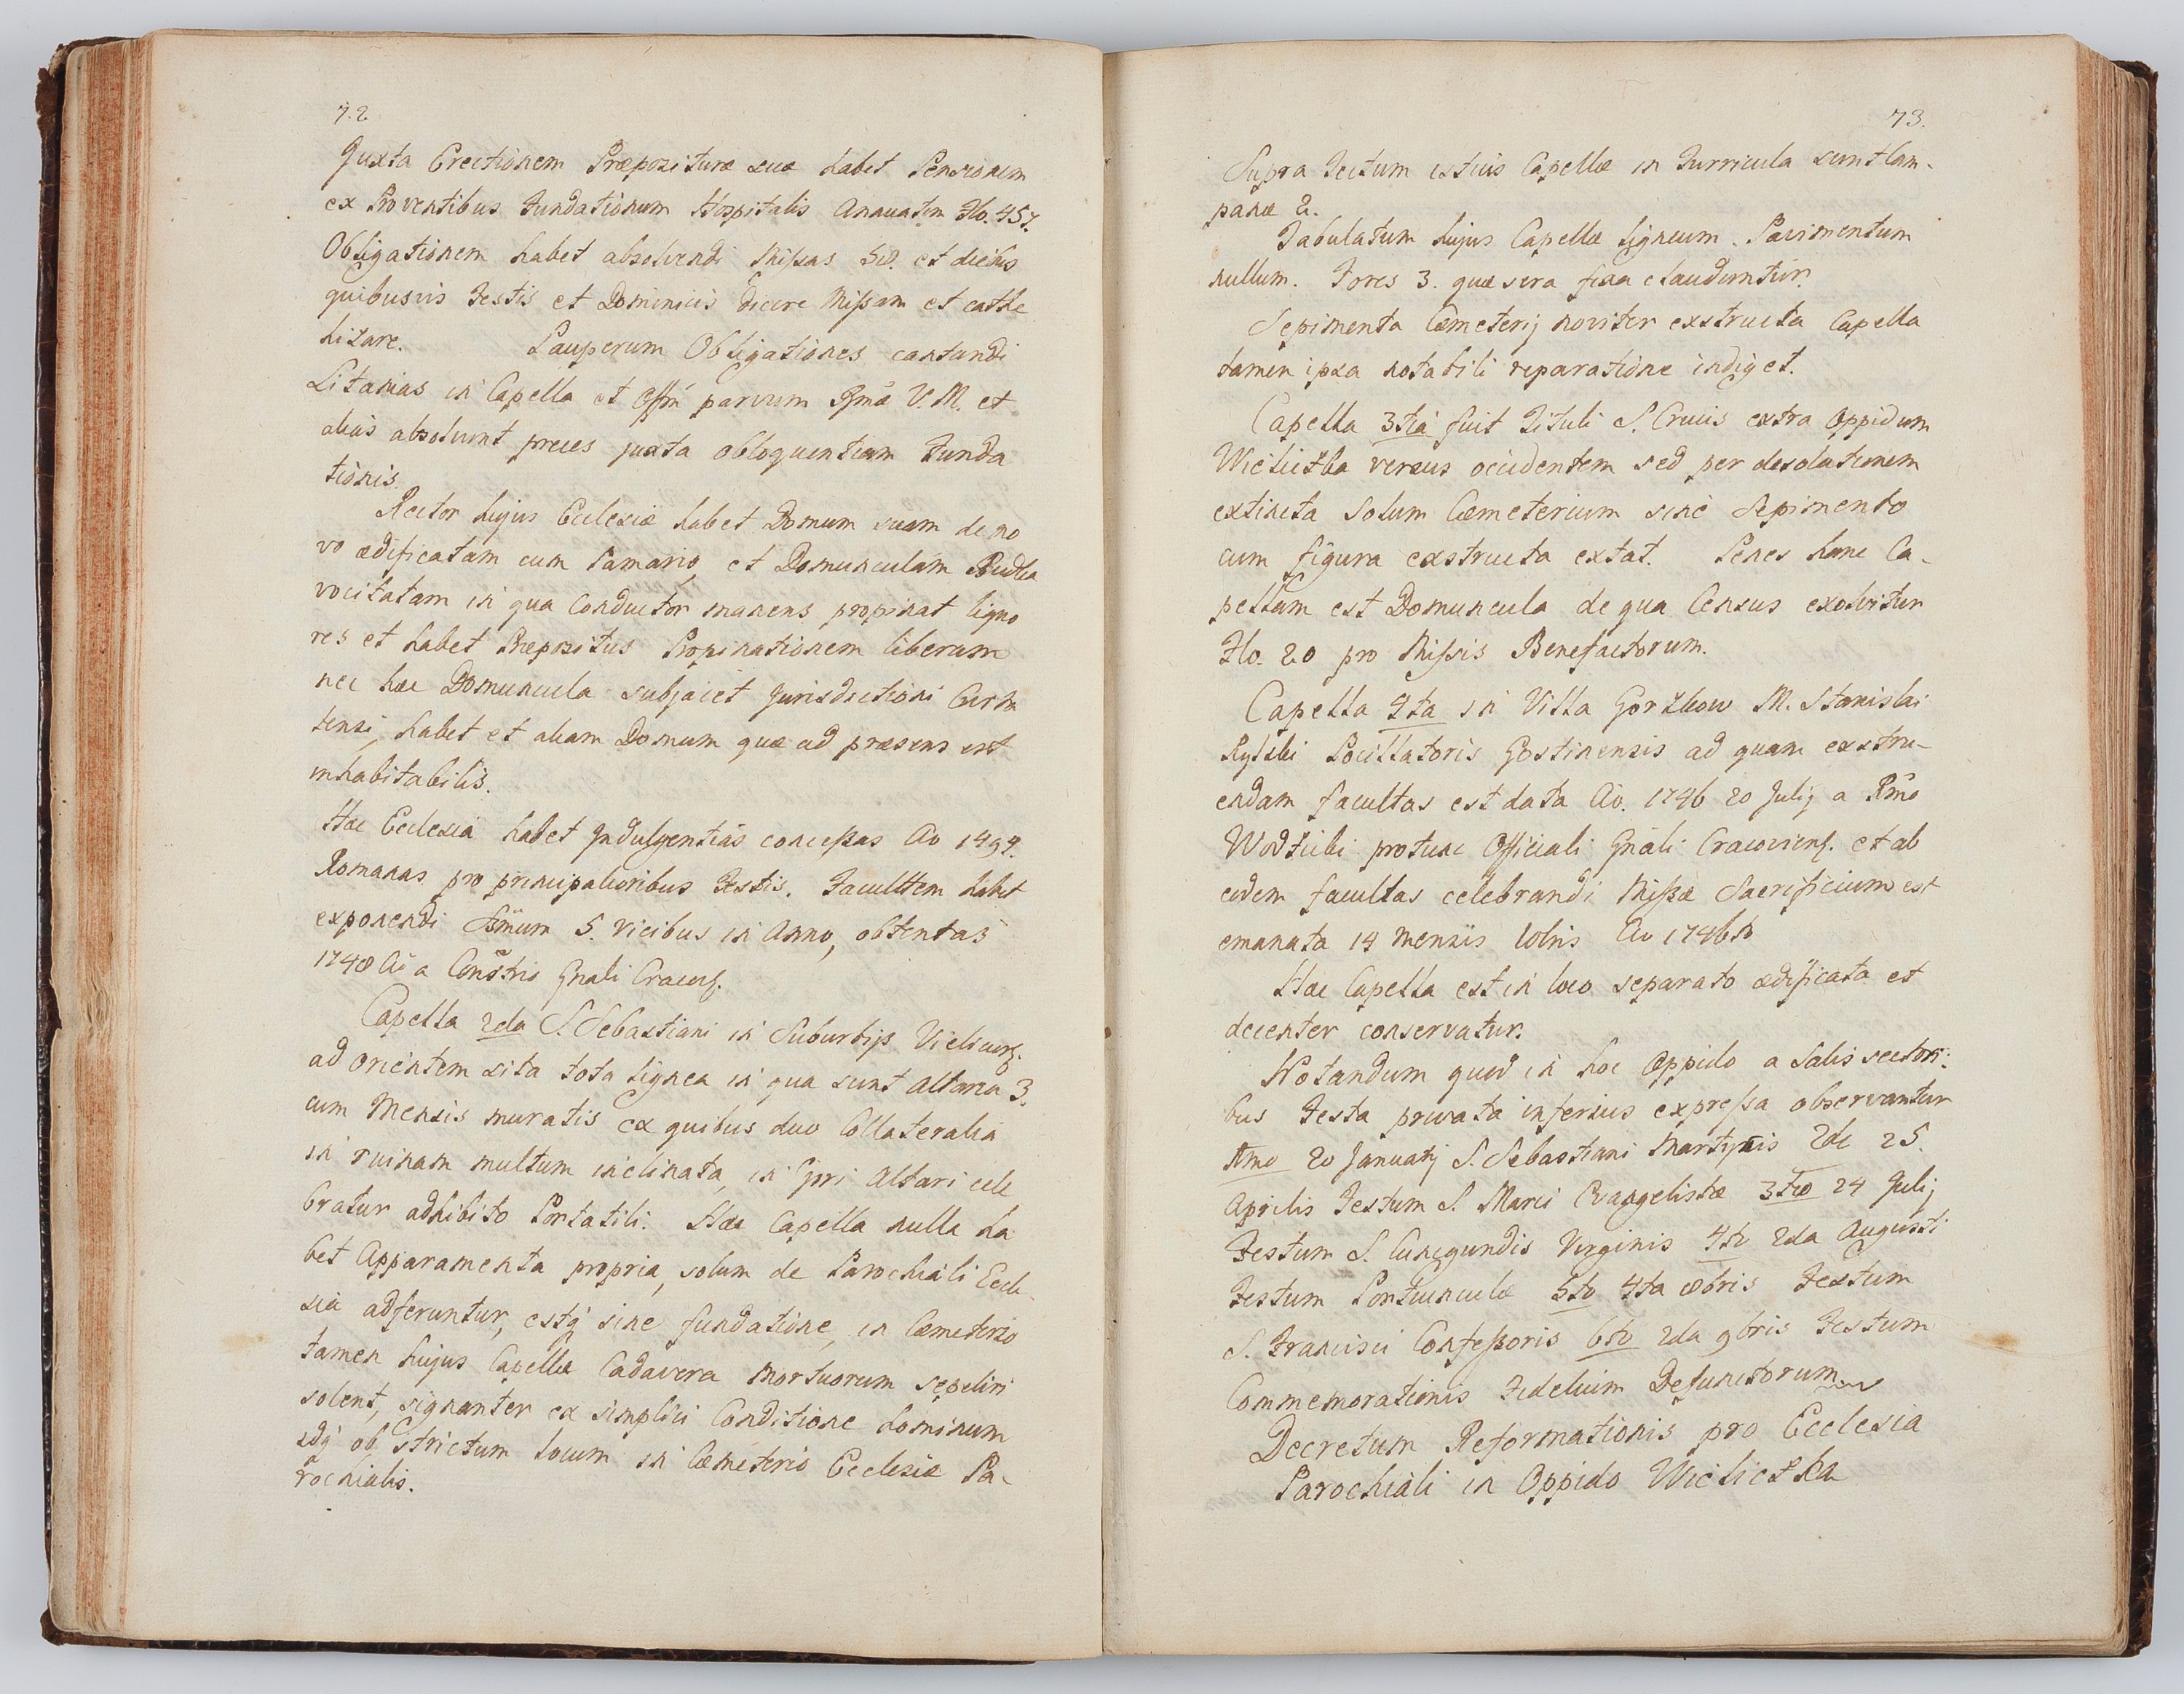 72
Juxta Erectionem Præposituræ suæ habet Pensionem
ex Proventibus Fundationum Hospitalis Annuatim Flo. 457.
Obligationem habet absolvendi Missas et diebus
quibusvis Festis et Dominicis dicere Missam et cathe
hizare. Pauperum Obligationes cantandi
Litanias in Capella et Offm parvum V. M. et
alias absolvunt preces juxta obloquentiam Funda
tionis.
Rector hujus Ecclesiæ habet Domum suam de no
vo ædificatam cum Pamario, et Domunculam Budka
vocitatam in qua Conductor manens propinat liquo
res et habet Præpositus Propinationem liberam
nec hæc Domuncula subjacet Jurisdictioni
habet et aliam Domum quæ ad præsens est
inhabitabilis.
Hæc Ecclesia habet Indulgentias concessas Ao 1494.
Romanas pro principalioribus Festis. Faculttem habet
exponendi Ssmum 5. vicibus in Anno, obtentas
1748 Ao a Constrio Gnali Cracovs.
Capella 2da S. Sebastiani in Suburbijs Vielicens.
ad Orientem sita tota lignea in qua sunt Altaria 3.
cum Mensis muratis ex quibus duo Collateralia
in ruinam multum inclinata, in Altari cele
bratur adhibito Portatili. Hæc Capella nulla ha
bet Apparamenta propria, solum de Parochiali Eccle-
sia adferuntur, estq sine fundatione, in Cæmeterio
tamen hujus Capellæ Cadavera Mortuorum sepeliri
solent, signanter ex simplici Conditione hominum
idq ob strictum locum in Cæmeterio Ecclesiæ Pa-
rochialis.
73.
Supra Tectum istius Capellæ in Turricula sunt Cam-
panæ 2.
Tabulatum hujus Capellæ ligneum. Pavimentum
nullum. Fores 3. quæ sera fixa clauduntur.
Sepimenta Cæmeterij noviter exstructa Capella
tamen ipsa notabili reparatione indiget.
Capella 3tia fuit Tituli S. Crucis extra Oppidum
Wieliczka versus occidentem sed per desolationem
extincta Solum Cæmeterium sine Sepimento
cum figura exstructa extat. Penes hanc Ca-
pellam est Domuncula de qua Census exolvitur
Flo. 20 pro Missis Benefactorum.
Capella 4ta in Villa Gorzkow M. Stanislai
Rylski Pocillatoris Gostinensis ad quam exstru-
endam facultas est data Ao. 1746 20 Julij a Rmo
Wodzicki protunc Officiali Gnali Cracoviens. et ab
eodem facultas celebrandi Missæ Sacrificium est
emanata 14 Mensis Ao 1746to
Hæc Capella est in loco separato ædificata et
decenter conservatur.
Notandum quod in hoc Oppido a Salis sectori-
bus Festa privata inferius expressa observantur
1mo 20 Januarij S. Sebastiani Martyris 2do 25.
Aprilis Festum S. Marci Evangelistæ 3tio 24 Julij
Festum S. Cunegundis Virginis 4to 2da Augusti
Festum Portiunculæ 5to 4ta 8bris Festum
S. Francisci Confessoris 6to 2da 9bris Festum
Commemorationis Fidelium Defunctorum
Decretum Reformationis pro Ecclesia
Parochiali in Oppido Wieliczka